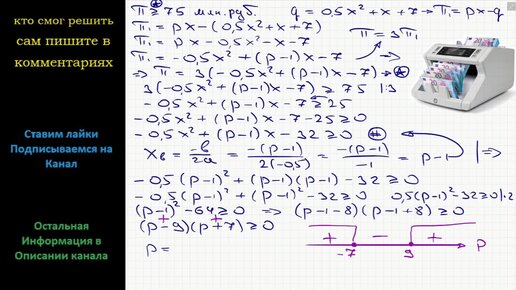 кто смог решить
сам пишите в
комментариях
Ставим лайки
Подписываемся на
Канал
Остальная
Информация в
Описании канала
П ≥ 75 млн.руб. q = 0,5x² + x + 7 → П₁ = px - q
П₁ = px - (0,5x² + x + 7)
П₁ = px - 0,5x² - x - 7
П₁ = -0,5x² + (p-1)x - 7 П = 3П₁
⇒ П = 3(-0,5x² + (p-1)x - 7)
3(-0,5x² + (p-1)x - 7) ≥ 75 |:3
-0,5x² + (p-1)x - 7 ≥ 25
-0,5x² + (p-1)x - 7 - 25 ≥ 0
-0,5x² + (p-1)x - 32 ≥ 0
xв = -b/2a = -(p-1)/2(-0,5) = -(p-1)/-1 = p-1 |⇒
-0,5(p-1)² + (p-1)(p-1) - 32 ≥ 0
-0,5(p-1)² + (p-1)² - 32 ≥ 0 0,5(p-1)² - 32 ≥ 0 |·2
(p-1)² - 64 ≥ 0 ⇒ (p-1-8)(p-1+8) ≥ 0
(p-9)(p+7) ≥ 0
+ - +
-7 9 p
p =